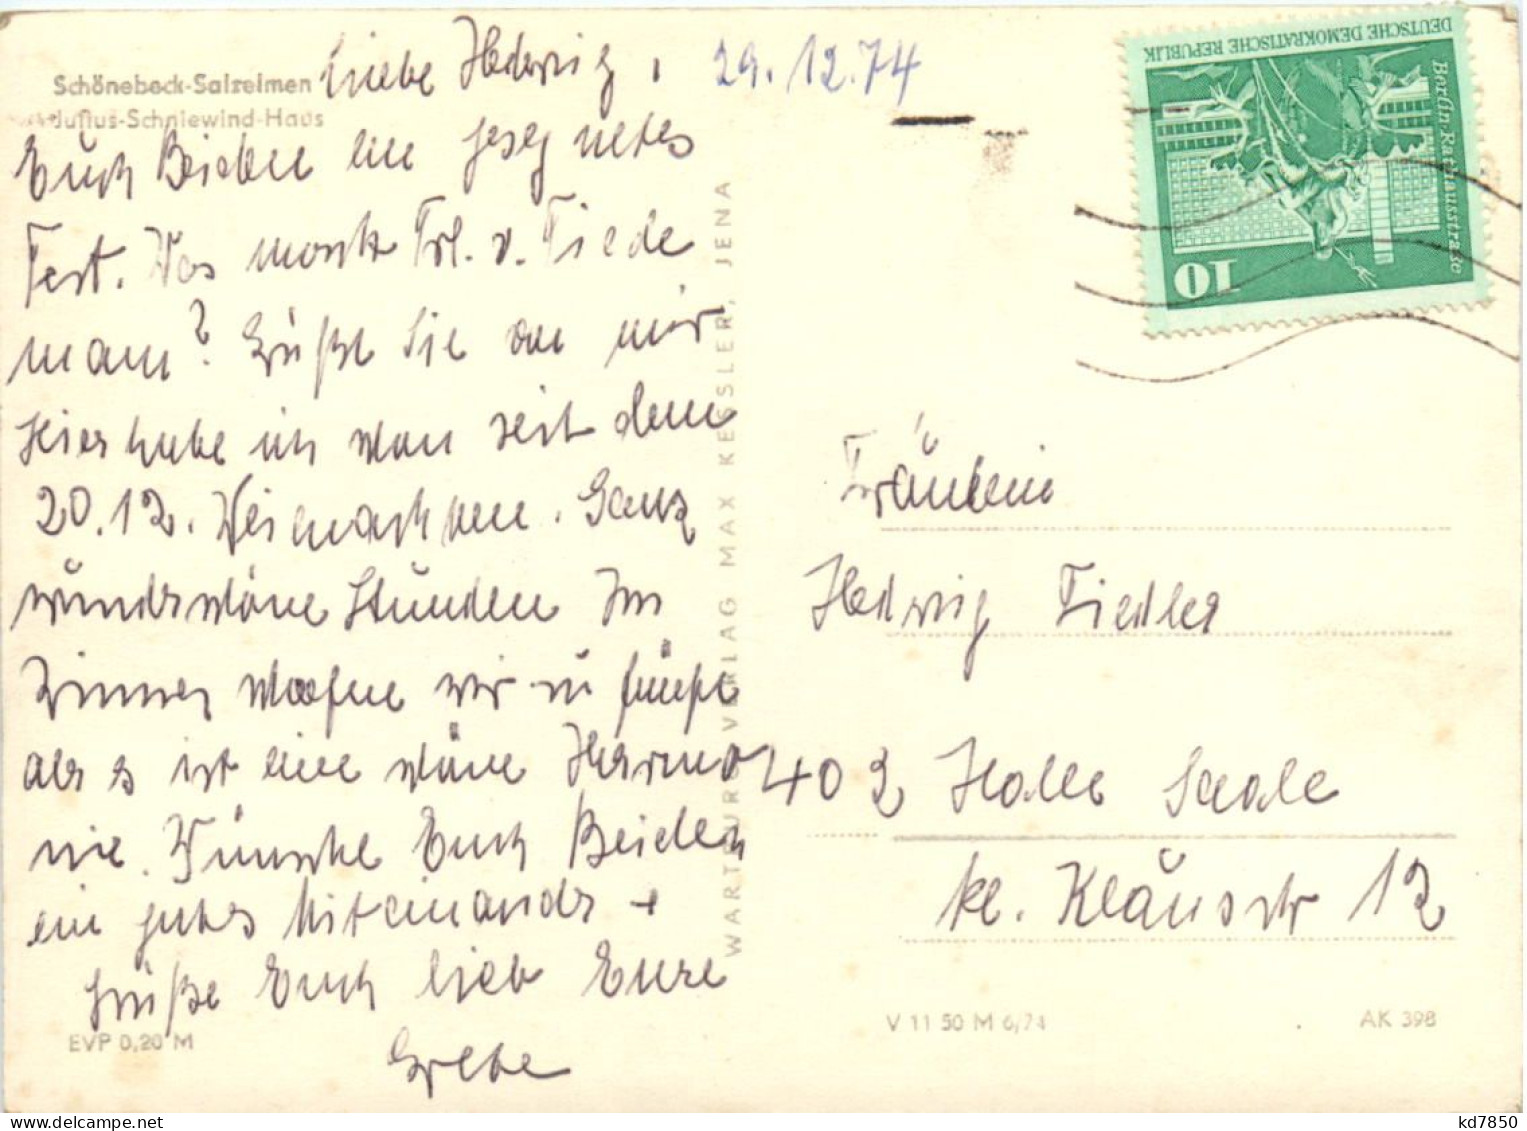 Schönebeck-Salzelmen
Julius-Schniewind-Haus
Liebe Hedwig, 29.12.74
Euch Beiden ein gesegnetes
Fest. Was macht Frl. v. Tiede
mann? Grüße Sie von mir
Hier habe ich schon seit dem
20.12. Weinachten. Ganz
wunderschöne Stunden Im
Zimmer schlafen wir zu fünft
aber es ist eine schöne Harmo
nie. Wünsche Euch Beiden
ein gutes Miteinander +
grüße Euch lieb Eure
Grete
EVP 0,20 M
WARTBURG VERLAG MAX KESSLER, JENA
DEUTSCHE DEMOKRATISCHE REPUBLIK
Berlin Rathausstraße
10
Fräulein
Hedwig Fiedler
402 Halle Saale
kl. Klausstr 12
V 11 50 M 6/74
AK 398
kd7850